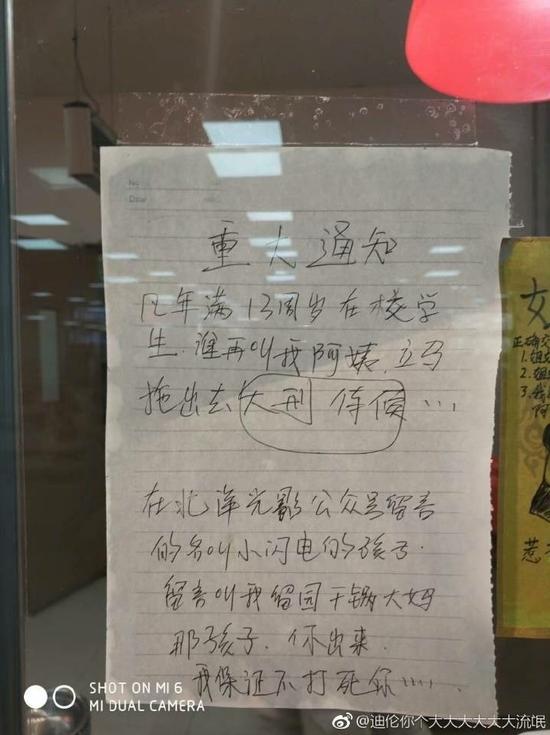 No
Date
重大通知
凡年满13周岁在校学
生.谁再叫我阿姨.立马
拖出去大刑 侍候…
在北洋光影公众号留言
的名叫小闪电的孩子.
留言叫我留园干锅大妈
那孩子.你出来.
我保证不打死你……
女
正确交
1.姐
2.姐
3.我
惹
SHOT ON MI 6
MI DUAL CAMERA
@迪伦你个大大大大大大流氓